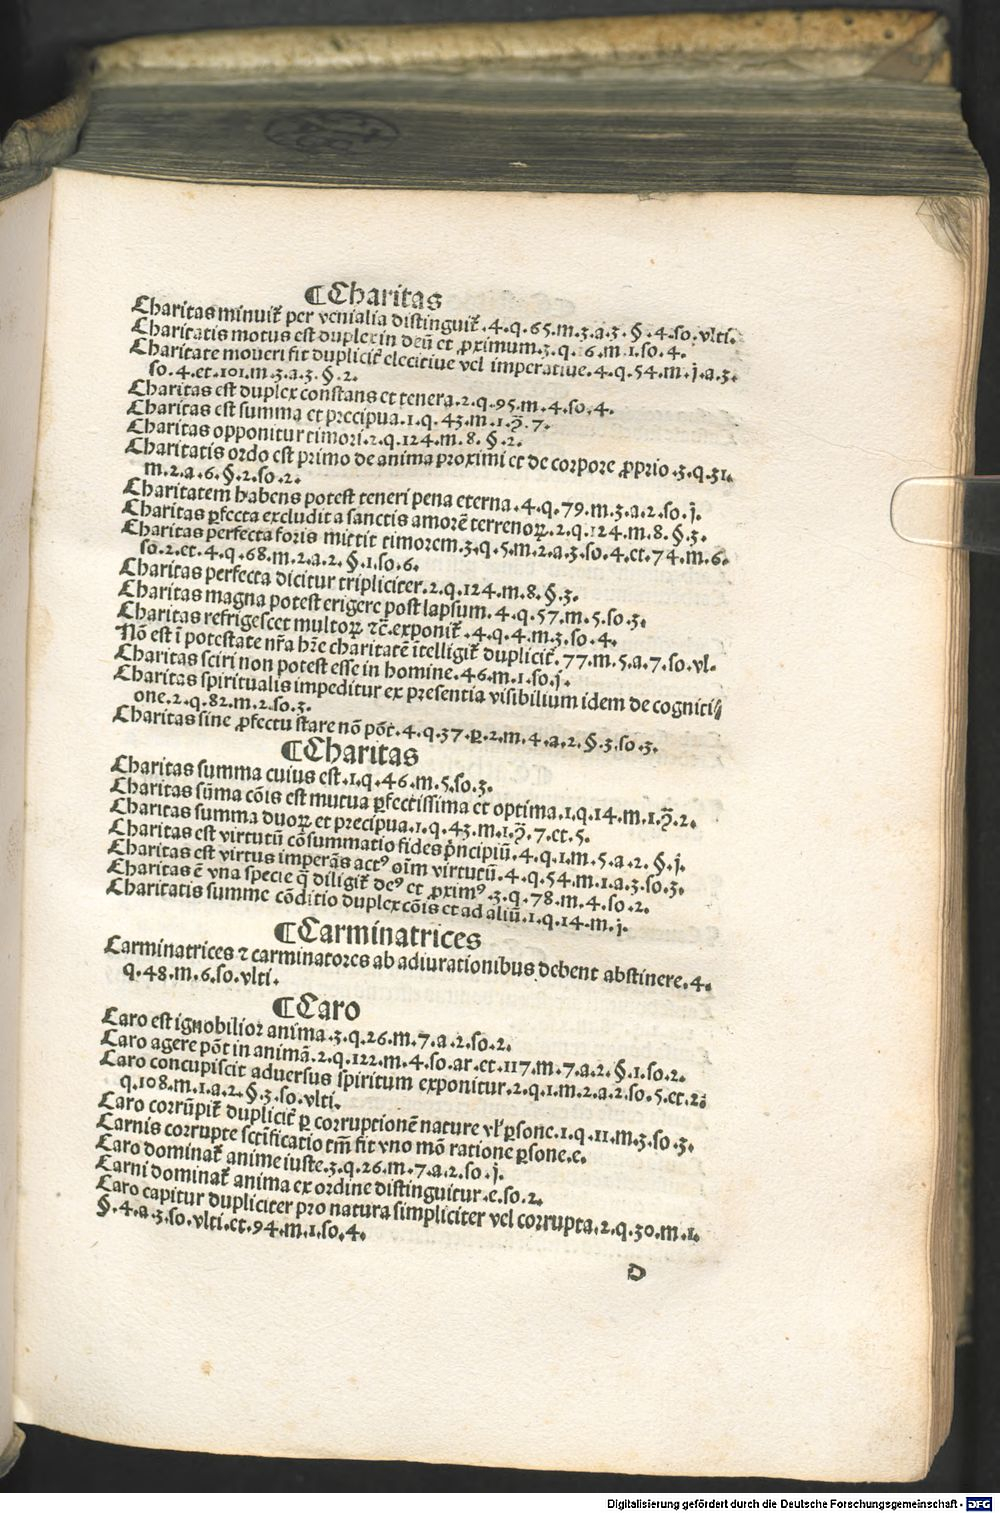 ¶Charitas
Charitas minuit᷑ per venialia distinguit᷑.4.q.65.m.3.a.3.§.4.so.vlti.
Charitatis motus est duplex in deū et ꝓximum.3.q.16.m.1.so.4.
Charitate moueri fit duplicit᷑ elecitiue vel imperatiue.4.q.54.m.j.a.3.
so.4.et.101.m.3.a.3.§.2.
Charitas est duplex constans et tenera.2.q.95.m.4.so.4.
Charitas est summa et precipua.1.q.43.m.1.q̄.7.
Charitas opponitur timori.2.q.124.m.8.§.2.
Charitatis ordo est primo de anima proximi et de corpore ꝓprio.3.q.31.
m.2.a.6.§.2.so.2.
Charitatem habens potest teneri pena eterna.4.q.79.m.3.a.2.so.j.
Charitas ꝑfecta excludit a sanctis amorē terrenoꝝ.2.q.124.m.8.§.3.
Charitas perfecta foris mittit timorem.3.q.5.m.2.a.3.so.4.et.74.m.6.
so.2.et.4.q.68.m.2.a.2.§.1.so.6.
Charitas perfecta dicitur tripliciter.2.q.124.m.8.§.3.
Charitas magna potest erigere post lapsum.4.q.57.m.5.so.3.
Charitas refrigescet multoꝝ ⁊c̄.exponit᷑.4.q.4.m.3.so.4.
Nō est ī potestate nr̄a hr̄e charitatē ītelligit᷑ duplicit᷑.77.m.5.a.7.so.vl.
Charitas sciri non potest esse in homine.46.m.1.so.j.
Charitas spiritualis impeditur ex presentia visibilium idem de cogniti⸗
one.2.q.82.m.2.so.3.
Charitas sine ꝓfectu stare nō pōt.4.q.37.ꝑ.2.m.4.a.2.§.3.so.3.
¶Charitas
Charitas summa cuius est.1.q.46.m.5.so.3.
Charitas sūma cōis est mutua ꝑfectissima et optima.1.q.14.m.1.q̄.2.
Charitas summa duoꝝ et precipua.1.q.43.m.1.q̄.7.et.5.
Charitas est virtutū cōsummatio fides pͥncipiū.4.q.1.m.5.a.2.§.j.
Charitas est virtus imperās actꝰ oīm virtutū.4.q.54.m.1.a.3.so.3.
Charitas ē vna specie q̄ diligit᷑ deꝰ et ꝓximꝰ.3.q.78.m.4.so.2.
Charitatis summe cōditio duplex cōis et ad aliū.1.q.14.m.j.
¶Carminatrices
Carminatrices ⁊ carminatores ab adiurationibus debent abstinere.4.
q.48.m.6.so.vlti.
¶Caro
Caro est ignobilior anima.3.q.26.m.7.a.2.so.2.
Caro agere pōt in animā.2.q.122.m.4.so.ar.et.117.m.7.a.2.§.1.so.2.
Caro concupiscit aduersus spiritum exponitur.2.q.1.m.2.a.2.so.5.et.2.
q.108.m.1.a.2.§.3.so.vlti.
Caro corrūpit᷑ duplicit᷑ ꝑ corruptionē nature vl̓ ꝑsone.1.q.11.m.3.so.3.
Carnis corrupte sctīficatio tm̄ fit vno mō ratione ꝑsone.e.
Caro dominat᷑ anime iuste.3.q.26.m.7.a.2.so.j.
Carni dominat᷑ anima ex ordine distinguitur.e.so.2.
Caro capitur dupliciter pro natura simpliciter vel corrupta.2.q.30.m.1.
§.4.a.3.so.vlti.et.94.m.1.so.4.
D
Digitalisierung gefördert durch die Deutsche Forschungsgemeinschaft - DFG